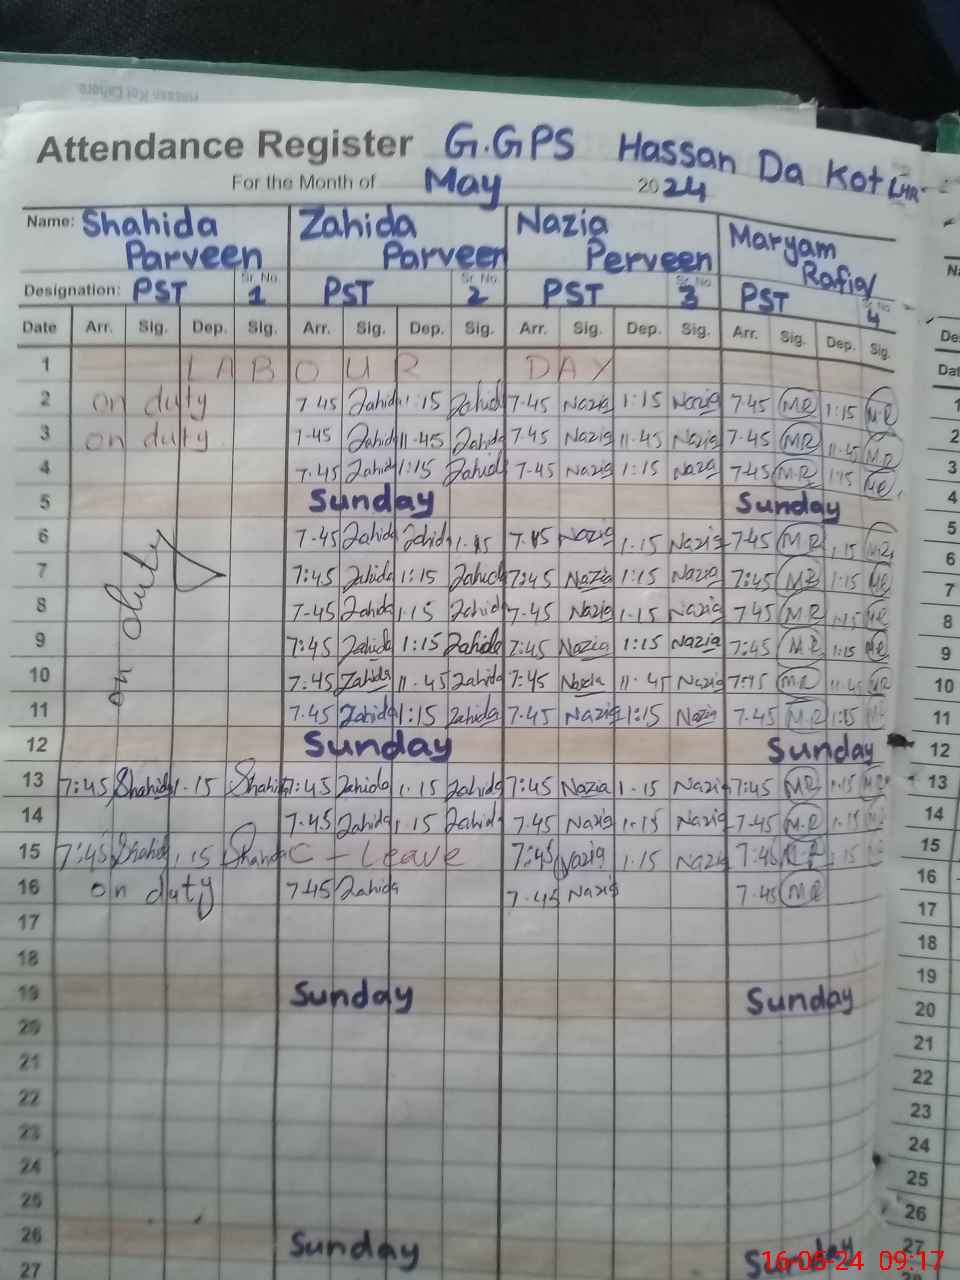 Attendance Register G.GPS Hassan Da Kot LHR
For the Month of May 2024
Name: Shahida Parveen Zahida Parveen Nazia Perveen Maryam Rafiq
Designation: PST Sr. No. 1 PST Sr. No. 2 PST Sr. No. 3 PST Sr. No. 4
Date Arr. Sig. Dep. Sig. Arr. Sig. Dep. Sig. Arr. Sig. Dep. Sig. Arr. Sig. Dep. Sig.
1 LABOUR DAY
2 on duty 7.45 Zahida 1:15 Zahida 7.45 Nazia 1:15 Nazia 7.45 MR 1:15 MR
3 on duty 7.45 Zahida 11.45 Zahida 7.45 Nazia 11.45 Nazia 7.45 MR 11.45 MR
4 7.45 Zahida 1:15 Zahida 7.45 Nazia 1:15 Nazia 7.45 MR 1:15 MR
5 Sunday Sunday
on duty
6 7.45 Zahida Zahida 1.15 7.45 Nazia 1.15 Nazia 7.45 MR 1.15 MR
7 7:45 Zahida 1:15 Zahida 7:45 Nazia 1:15 Nazia 7:45 MR 1:15 MR
8 7.45 Zahida 1.15 Zahida 7.45 Nazia 1.15 Nazia 7.45 MR 1:15 MR
9 7:45 Zahida 1:15 Zahida 7:45 Nazia 1:15 Nazia 7:45 MR 1:15 MR
10 7:45 Zahida 11.45 Zahida 7:45 Nazia 11.45 Nazia 7:45 MR 11.45 MR
11 7.45 Zahida 1:15 Zahida 7.45 Nazia 1:15 Nazia 7.45 MR 1:15
12 Sunday Sunday
13 7:45 Shahida 1.15 Shahida 7:45 Zahida 1.15 Zahida 7:45 Nazia 1.15 Nazia 7:45 MR 1.15 MR
14 7.45 Zahida 1.15 Zahida 7.45 Nazia 1.15 Nazia 7.45 M.R 1.15
15 7:45 Shahida 1.15 Shahida C - Leave 7:45 Nazia 1.15 Nazia 7:45 MR 1.15
16 on duty 7.45 Zahida 7.45 Nazia 7.45 MR
17
18
19 Sunday Sunday
20
21
22
23
24
25
26 Sunday Sunday
27
De
Dat
1
2
3
4
5
6
7
8
9
10
11
12
13
14
15
16
17
18
19
20
21
22
23
24
25
26
27
16-05-24 09:17